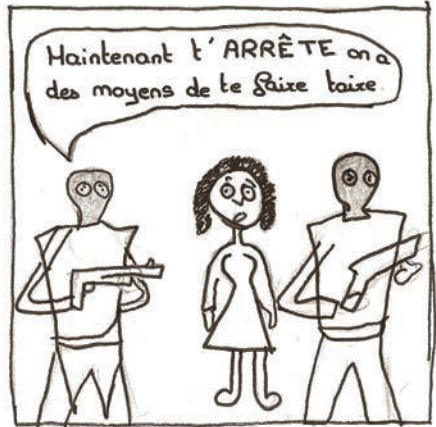 Maintenant t'ARRÊTE on a
des moyens de te faire taire.